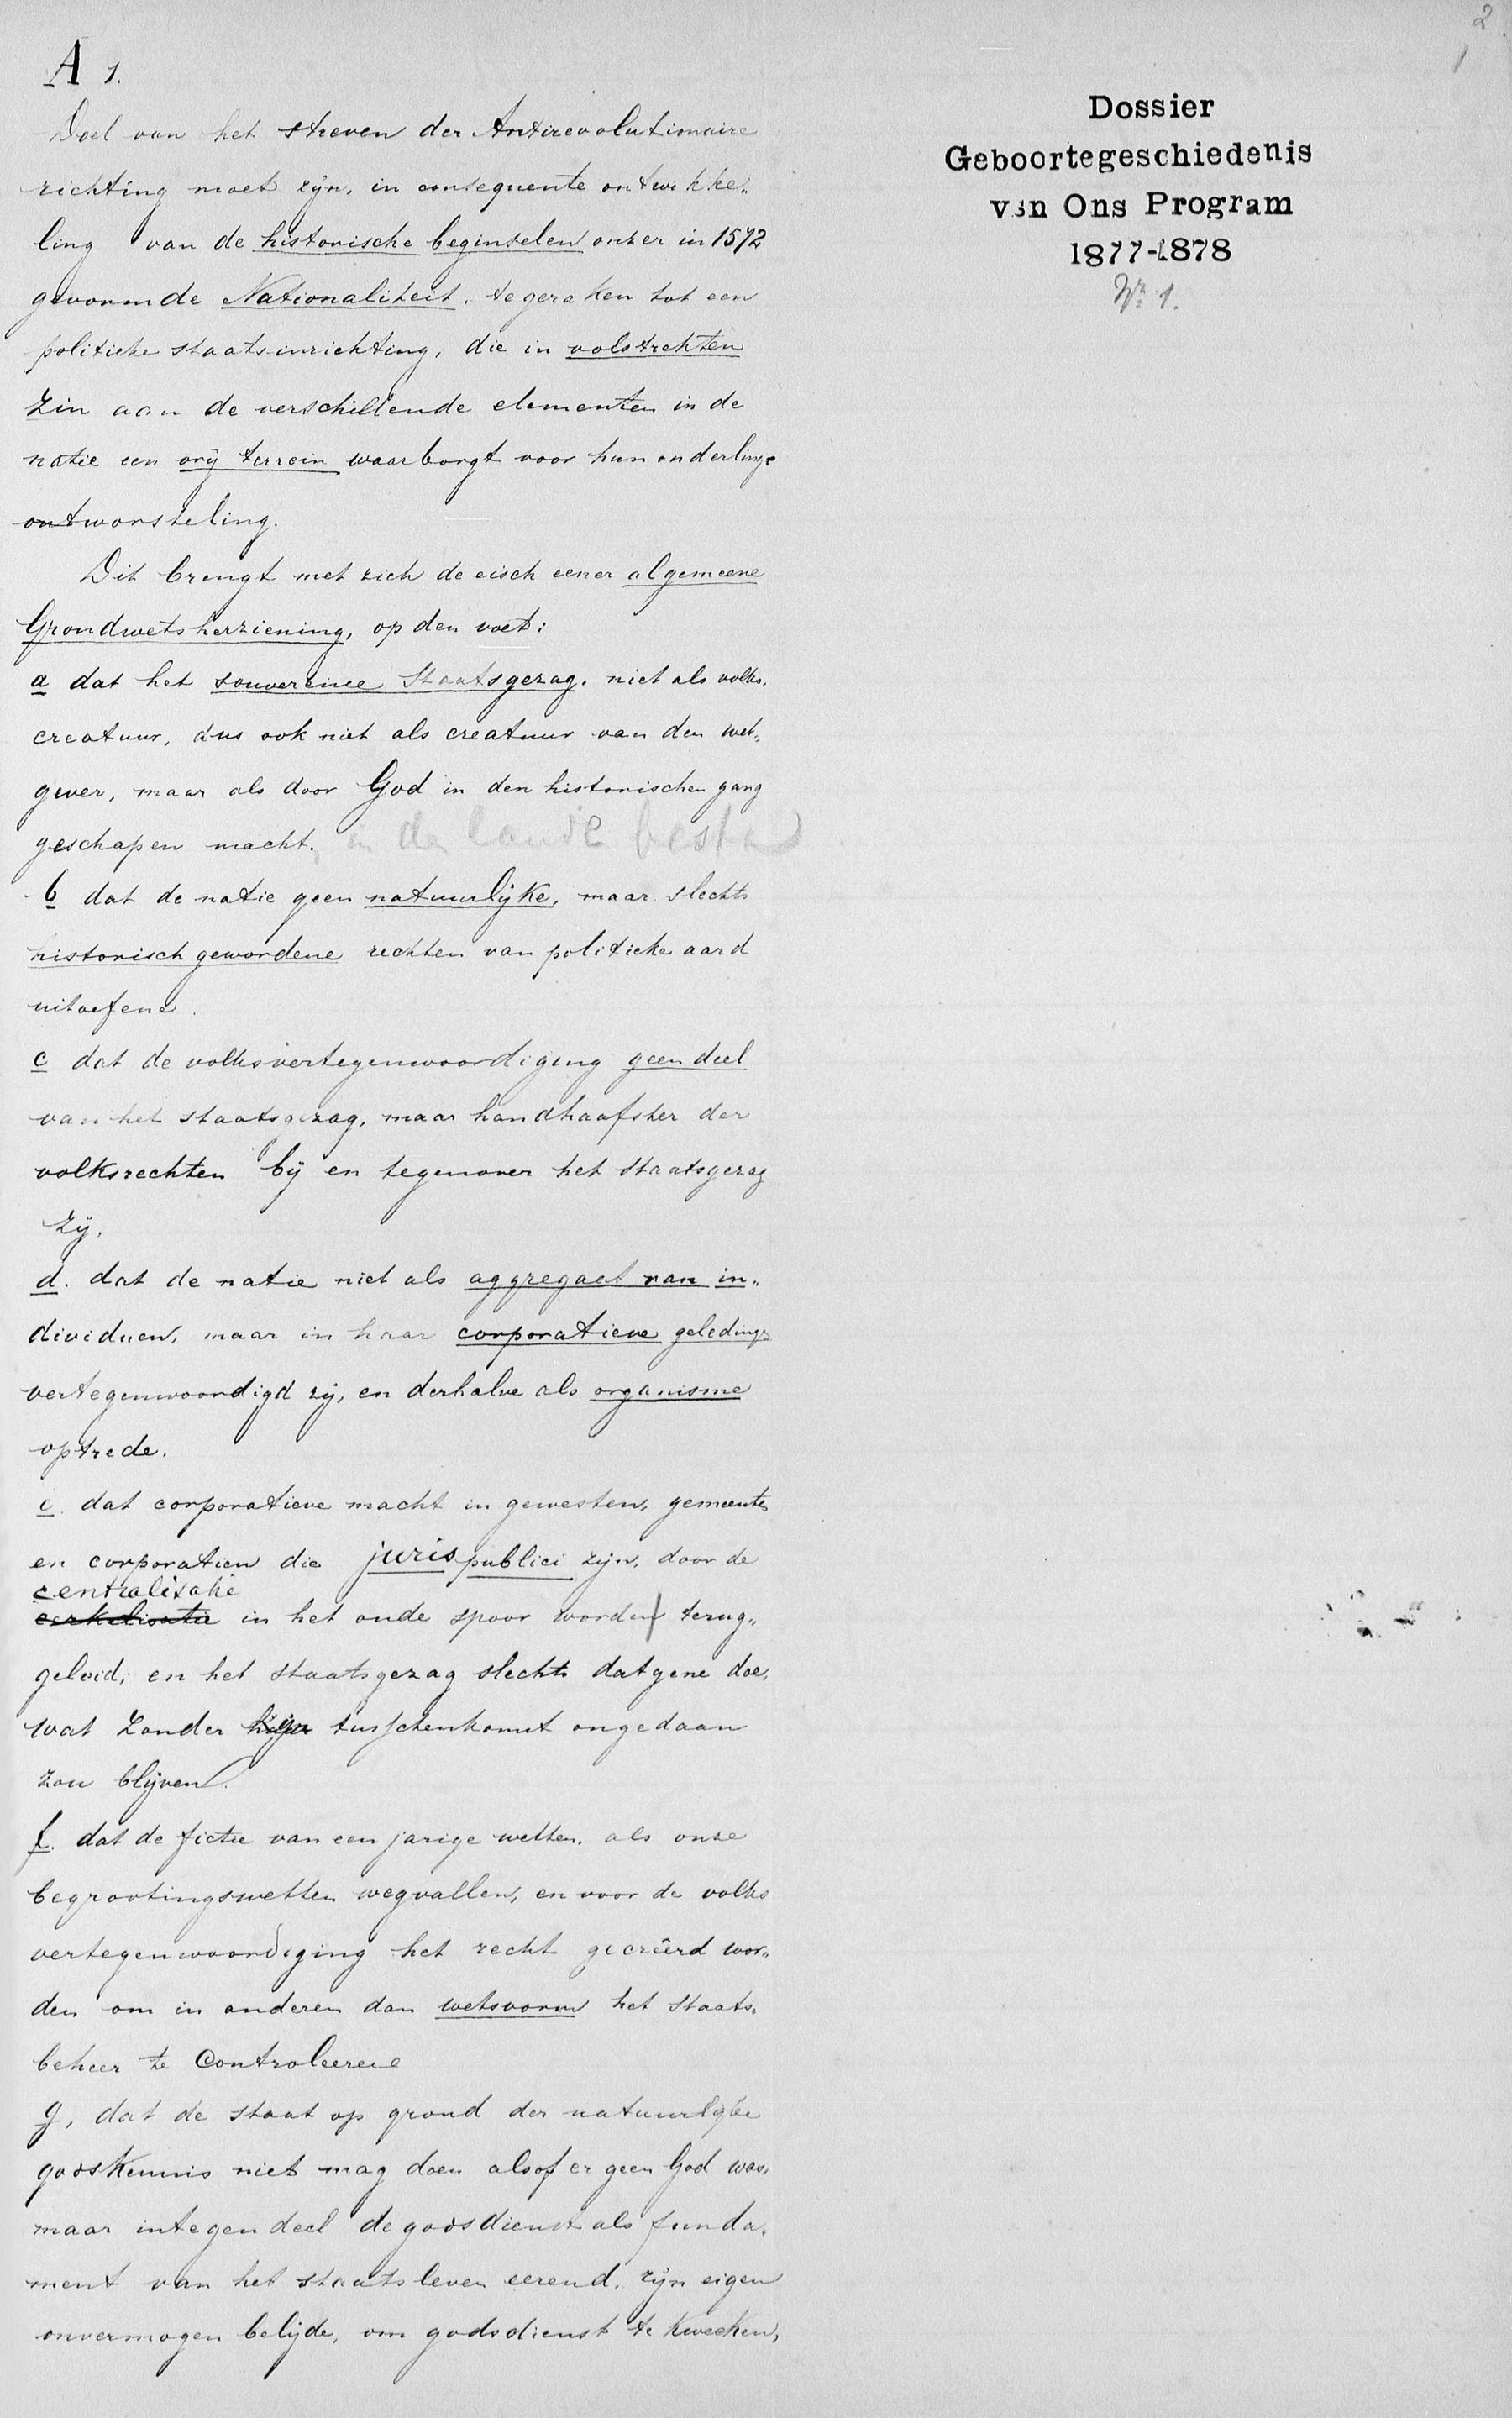 2
1
A 1.
Dossier
Geboortegeschiedenis
van Ons Program
1877-1878
Nr. 1.
Doel van het streven der Antirevolutionaire
richting moet zijn, in consequente ontwikke„
ling van de historische beginselen onzer in 1572
gevormde Nationaliteit, te geraken tot een
politieke staatsinrichting, die in volstrekten
zin aan de verschillende elementen in de
natie een vrij terrein waarborgt voor hun onderlinge
ontworsteling.
Dit brengt met zich de eisch eener algemeene
Grondwetsherziening, op den voet:
a dat het souvereine Staatsgezag, niet als volks„
creatuur, dus ook niet als creatuur van den wet„
gever, maar als door God in den historischen gang
geschapen macht. in den lande besta
b dat de natie geen natuurlijke, maar slechts
historisch gewordene rechten van politieke aard
uitoefene.
c dat de volksvertegenwoordiging geen deel
van het staatsgezag, maar handhaafster der
volksrechten bij en tegenover het staatsgezag
zij.
d. dat de natie niet als aggregaat van in„
dividuen, maar in haar corporatieve geledings
vertegenwoordigd zij, en derhalve als organisme
optrede.
e. dat corporatieve macht in gewesten, gemeentes
en corporatien die juris publici zijn, door de
centralisatie
in het oude spoor worden terug„
geleid; en het staatsgezag slechts datgene doe,
wat zonder zijn tusschenkomst ongedaan
zou blijven.
f. dat de fictie van een jarige wetten, als onze
begrootingswetten wegvallen, en voor de volks
vertegenwoordiging het recht gecreëerd wor„
den om in anderen dan wetsvorm het staats„
beheer te Controleeren
g, dat de staat op grond der natuurlijke
godskennis niet mag doen alsof er geen God was,
maar integendeel de godsdienst als funda„
ment van het staatsleven eerend, zijn eigen
onvermogen belijde, om godsdienst te kweeken,